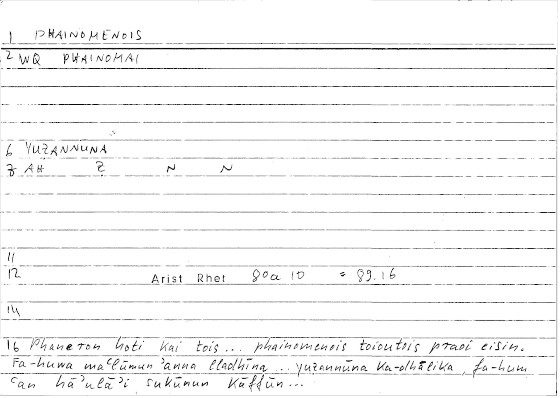 1 PHAINOMENOIS
2 WQ PHAINOMAI
6 YUẒANNŪNA
7 AH Ẓ N N
11
12 Arist Rhet 80a 10 = 89.16
14
16 Phaneron hoti kai tois... phainomenois toioutois praoi eisin.
Fa-huwa maʿlūmun ʾanna lladhīna ... yuẓannūna ka-dhālika, fa-hum
ʿan hāʾulāʾi sukūnun kāffūn...